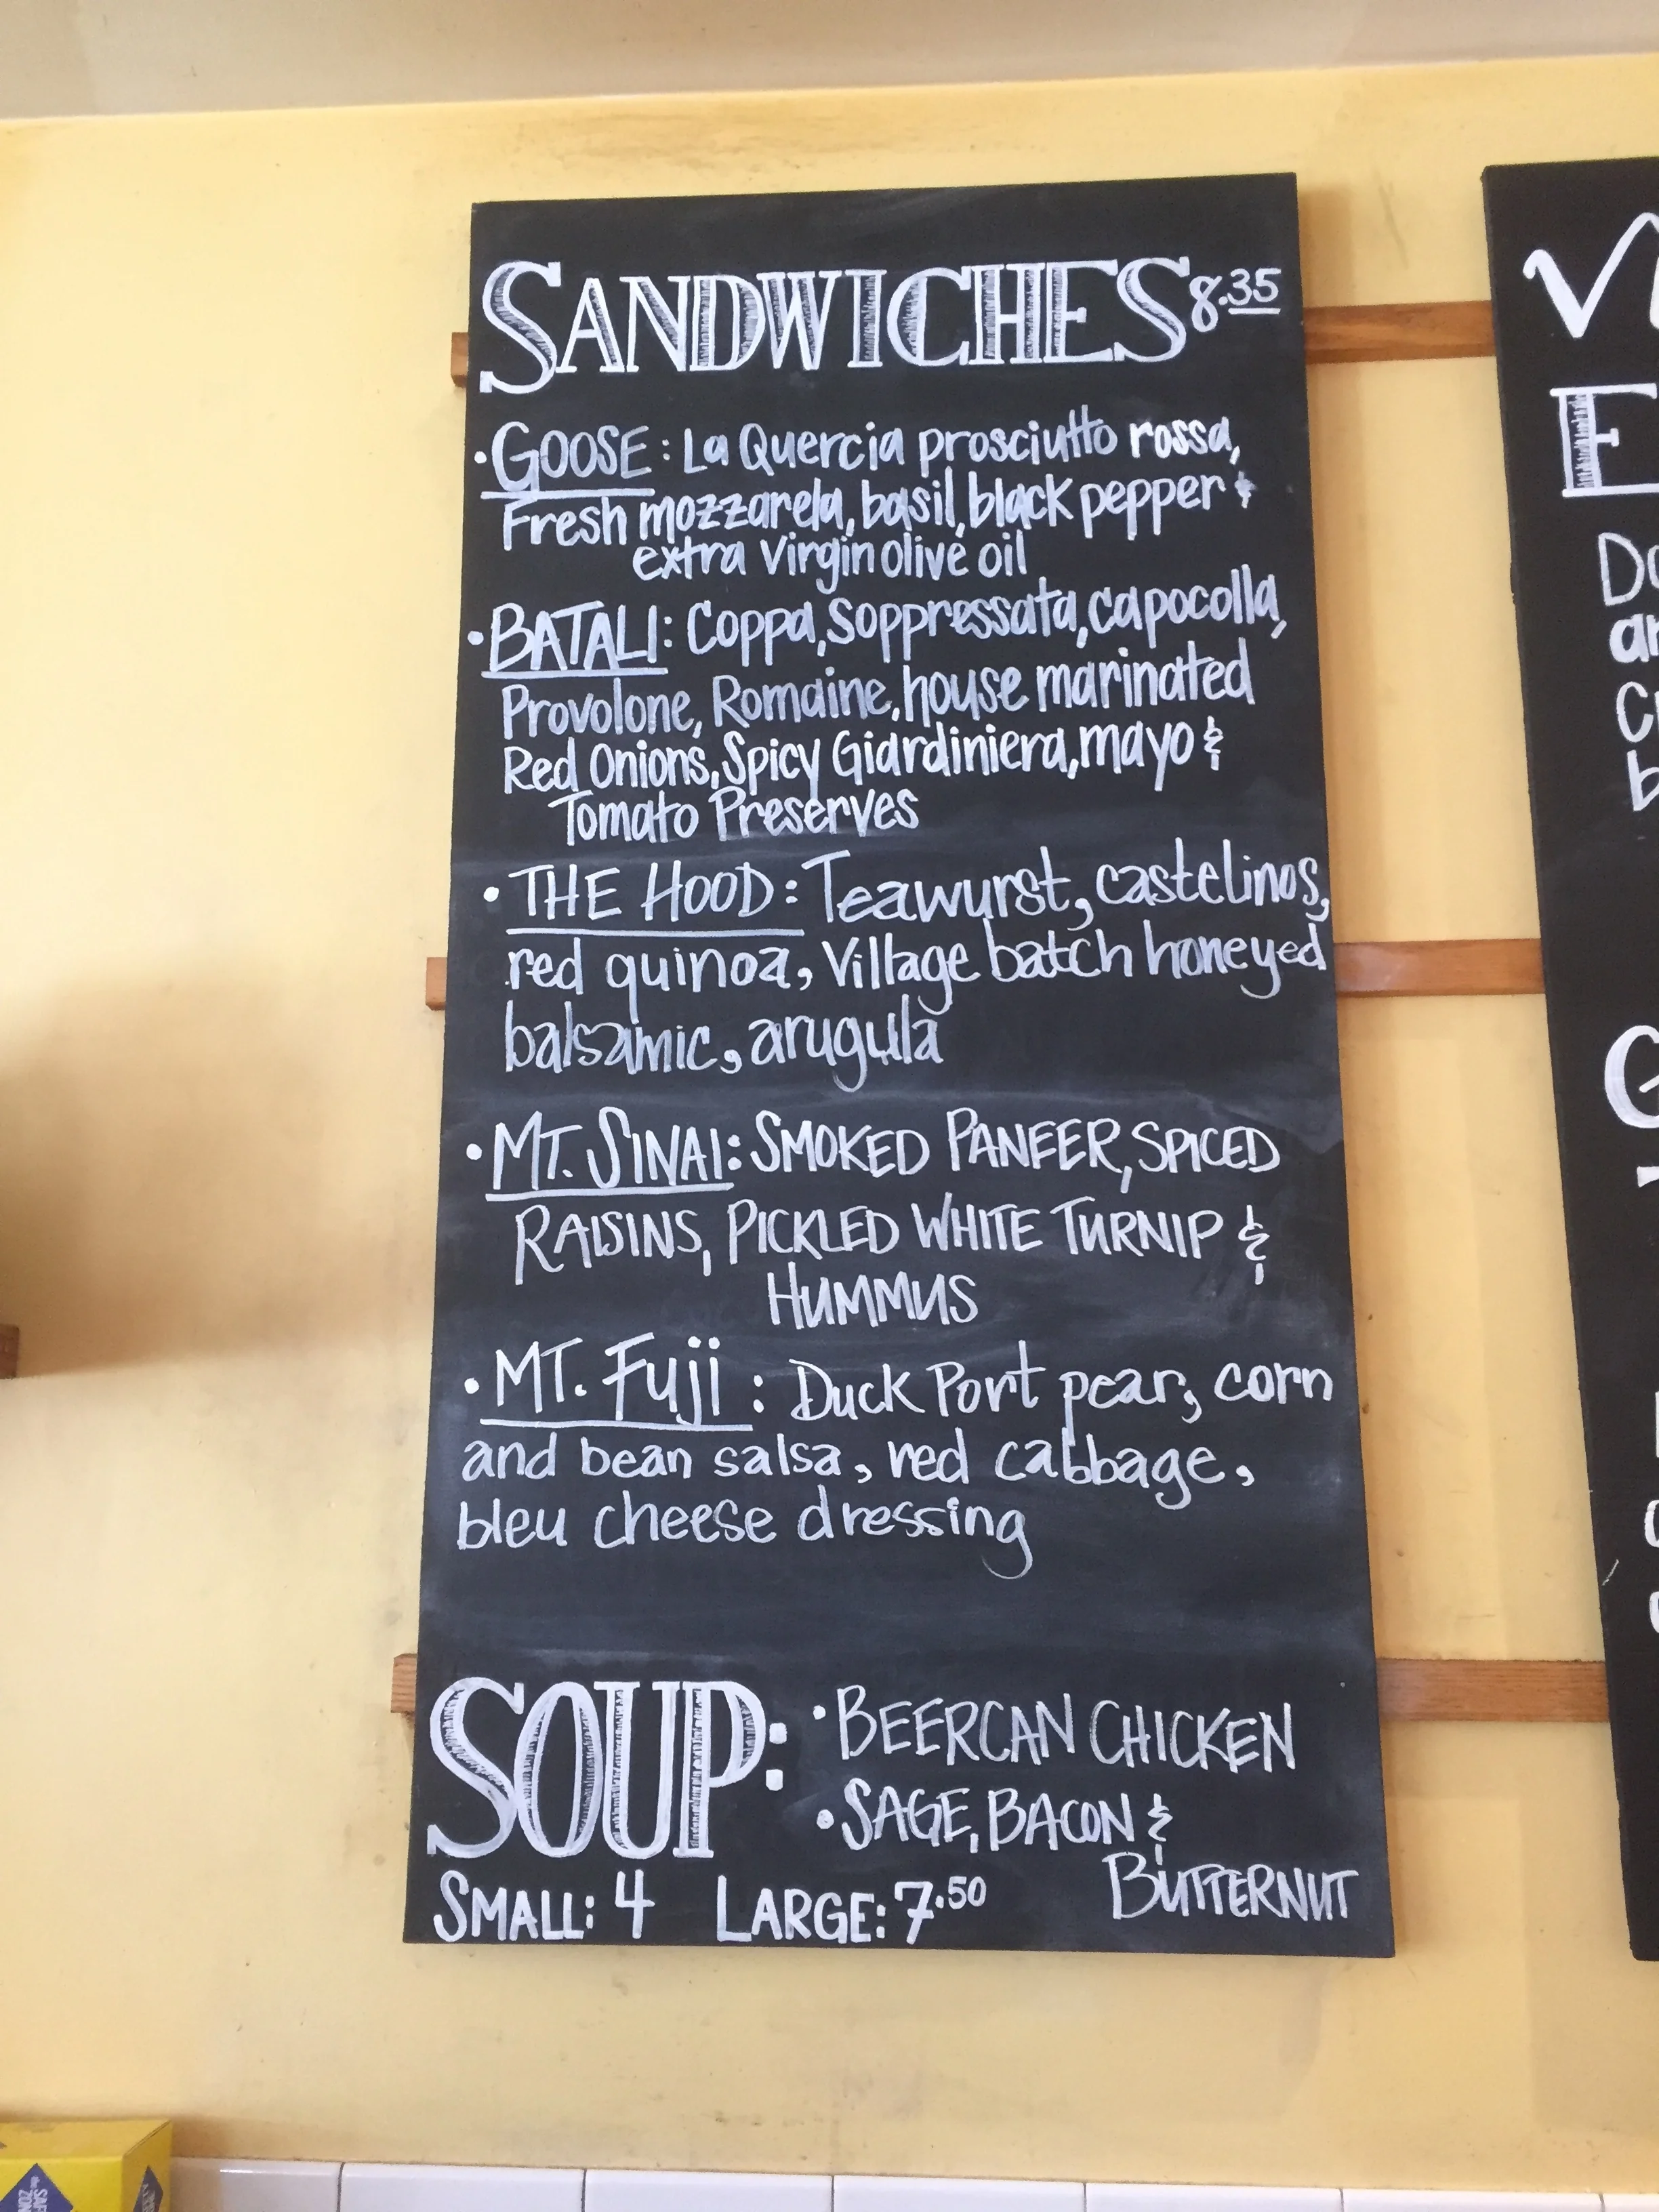 SANDWICHES 8.35
• GOOSE: La Quercia prosciutto rossa,
Fresh mozzarela, basil, black pepper &
extra virgin olive oil
• BATALI: Coppa, Soppressata, capocolla,
Provolone, Romaine, house marinated
Red Onions, Spicy Giardiniera, mayo &
Tomato Preserves
• THE HOOD: Teawurst, castelinos,
red quinoa, Village batch honeyed
balsamic, arugula
• MT. SINAI: SMOKED PANEER, SPICED
RAISINS, PICKLED WHITE TURNIP &
HUMMUS
• MT. Fuji: Duck Port pear, corn
and bean salsa, red cabbage,
bleu cheese dressing
SOUP: • BEERCAN CHICKEN
• SAGE, BACON &
BUTTERNUT
SMALL: 4 LARGE: 7.50